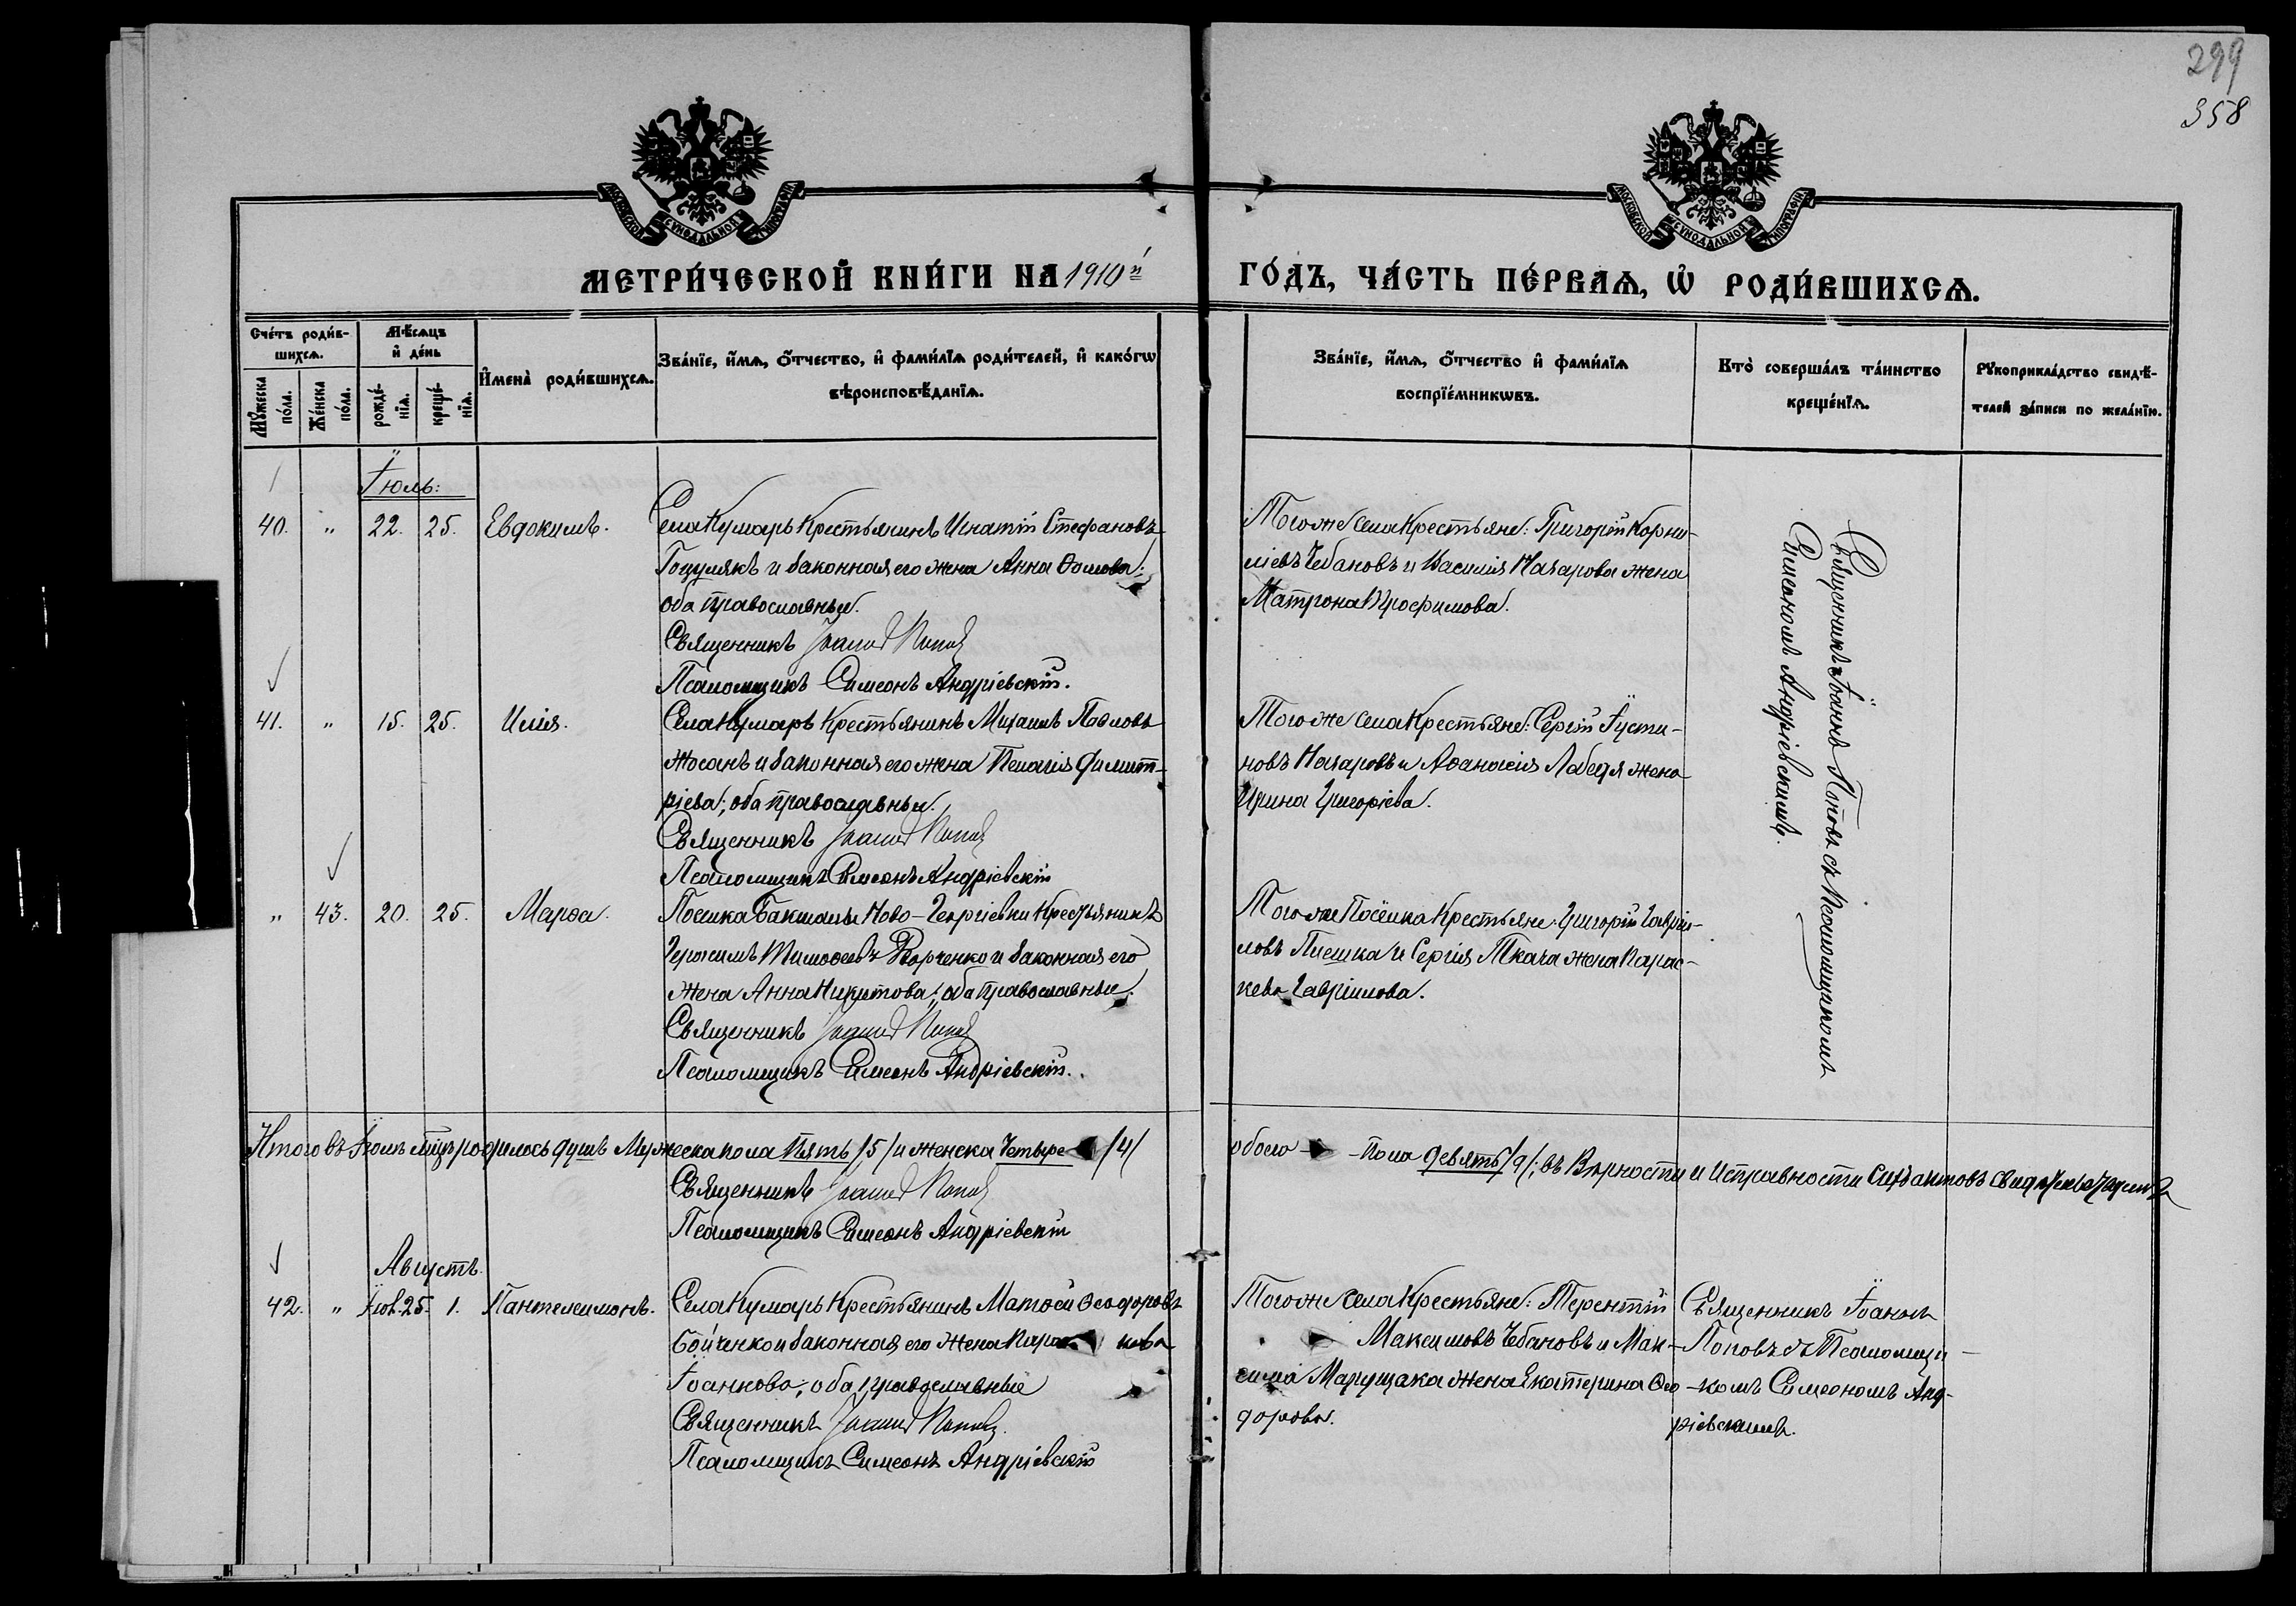 299
358
МОСКОВСКОЙ СѴНОДАЛЬНОЙ ТИПОГРАФІИ
МОСКОВСКОЙ СѴНОДАЛЬНОЙ ТИПОГРАФІИ
МЕТРИ́ЧЕСКОЙ КНИ́ГИ НА 1910й ГО́ДЪ, ЧА́СТЬ ПЕ́РВАѦ, Ѡ҆ РОДИ́ВШИХСѦ.
Сче́тъ роди́в-
шихсѧ.
Мꙋ́жеска
по́ла.
Же́нска
по́ла.
Мѣ́сѧцъ
и҆ де́нь
рожде́-
нїѧ.
креще́-
нїѧ.
И҆мена̀ роди́вшихсѧ.
Зва́нїе, и҆́мѧ, ѻ҆́тчество, и҆ фами́лїѧ роди́телей, и҆ како́гѡ
вѣроисповѣ́данїѧ.
Зва́нїе, и҆́мѧ, ѻ҆́тчество и҆ фами́лїѧ
воспрїе́мникѡвъ.
Кто̀ соверша́лъ та́инство
креще́нїѧ.
Рꙋкоприкла́дство свидѣ́-
телей за́писи по жела́нїю.
Іюль:
40. " 22. 25. Евдокимъ.
Села Кумаръ Крестьянинъ Игнатій Стефановъ
Гоцулякъ и законная его жена Анна Ѳомова;
оба православные.
Священникъ Іоаннъ Поповъ
Псаломщикъ Симеонъ Андріевскій.
Того же села Крестьяне: Григорій Корни-
ліевъ Чебановъ и Василія Назарова жена
Матрона Трофимова.
Священникъ Іоаннъ Поповъ съ Псаломщикомъ
Симеономъ Андріевскимъ.
41. " 15. 25. Илія.
Села Кумаръ Крестьянинъ Михаилъ Павловъ
Жосанъ и законная его жена Пелагія Димит-
ріева; оба православные.
Священникъ Іоаннъ Поповъ
Псаломщикъ Симеонъ Андріевскій
Того же села Крестьяне: Сергій Іусти-
новъ Назаровъ и Аѳанасія Лебедя жена
Ирина Григоріева.
" 43. 20. 25. Марѳа.
Посёлка Бакшалы Ново-Георгіевки Крестьянинъ
Герасимъ Тимоѳеевъ и законная его
жена Анна Никитова; оба православные.
Священникъ Іоаннъ Поповъ
Псаломщикъ Симеонъ Андріевскій.
Того же Посёлка Крестьяне: Григорій Гаврии-
ловъ и Сергія Ткача жена Парас-
кева Гавріилова.
Итого въ Іюлѣ мцѣ родилось душъ Мужеска пола Пять /5/ и женска Четыре /4/ обоего - пола девять /9/; въ Вѣрности и Исправности сихъ актовъ свидѣтельствуемъ
Священникъ Іоаннъ Поповъ
Псаломщикъ Симеонъ Андріевскій
Августъ.
42. " Іюл. 25. 1. Пантелеимонъ.
Села Кумаръ Крестьянинъ Матѳей Ѳеодоровъ
Бойченко и законная его жена Парас кева
Іоаннова; оба православные
Священникъ Іоаннъ Поповъ.
Псаломщикъ Симеонъ Андріевскій
Того же села Крестьяне: Терентій
Максимовъ Чебановъ и Мак-
сима Марущака жена Екатерина Ѳео-
дорова.
Священникъ Іоаннъ
Поповъ съ Псаломщи-
комъ Симеономъ Анд-
ріевскимъ.